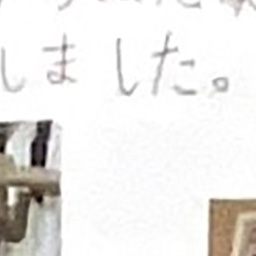 しました。